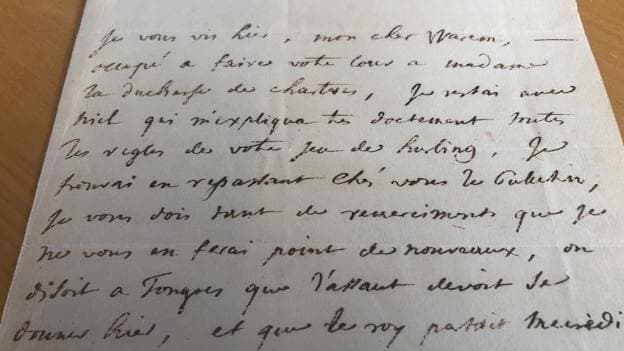 Je vous vis hier, mon cher Warem, —
occupé a faire vote cour a madame
la duchesse de chartres, Je restai avec
niel qui m'expliqua tès doctement toutes
les regles de vote jeu de hurling, Je
trouvai en repassant ché vous le Bulletin,
Je vous dois tant de remerciments que je
ne vous en ferai point de nouveaux, on
disoit a Tongres que l'assaut devoit se
donner hier, et que le roy partoit Mecredi